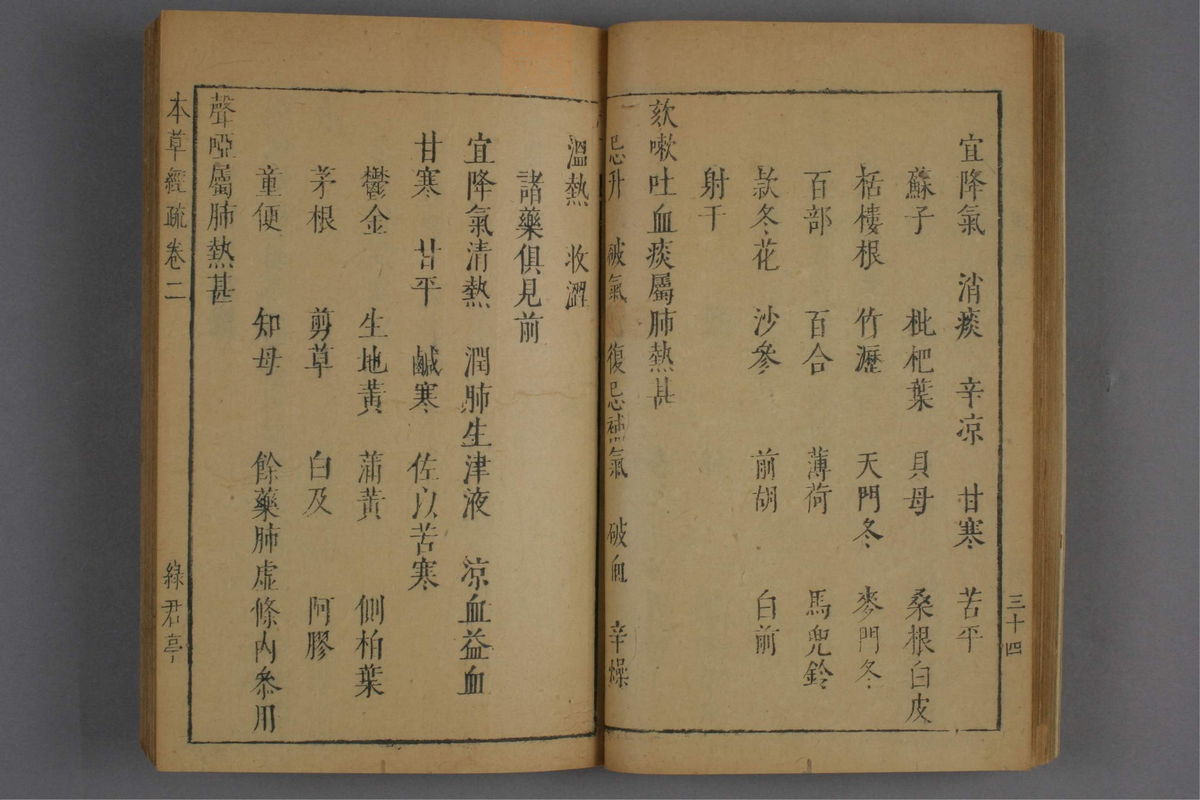 三十四
宜降氣 消痰 辛凉 甘寒 苦平
蘇子 枇杷葉 貝母 桑根白皮
栝樓根 竹瀝 天門冬 麥門冬
百部 百合 薄荷 馬兜鈴
款冬花 沙參 前胡 白前
射干
欬嗽吐血痰屬肺熱甚
忌升 破氣 復忌補氣 破血 辛燥
溫熱 收澀
諸藥俱見前
宜降氣清熱 潤肺生津液 凉血益血
甘寒 甘平 鹹寒 佐以苦寒
鬱金 生地黃 蒲黃 側柏葉
茅根 剪草 白及 阿膠
童便 知母 餘藥肺虛條內叅用
聲啞屬肺熱甚
本草經疏卷二 綠君亭